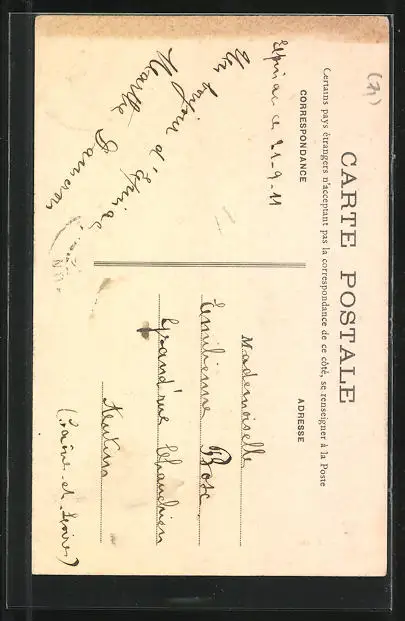 (71)
CARTE POSTALE
Certains pays étrangers n'acceptant pas la correspondance de ce côté, se renseigner à la Poste
CORRESPONDANCE
ADRESSE
Epinac le 21-9-11
Un bonjour d'Epinac
Marthe
Mademoiselle
Emilienne Bosc
Grand'rue Chaudrien
(Saône-et-Loire)